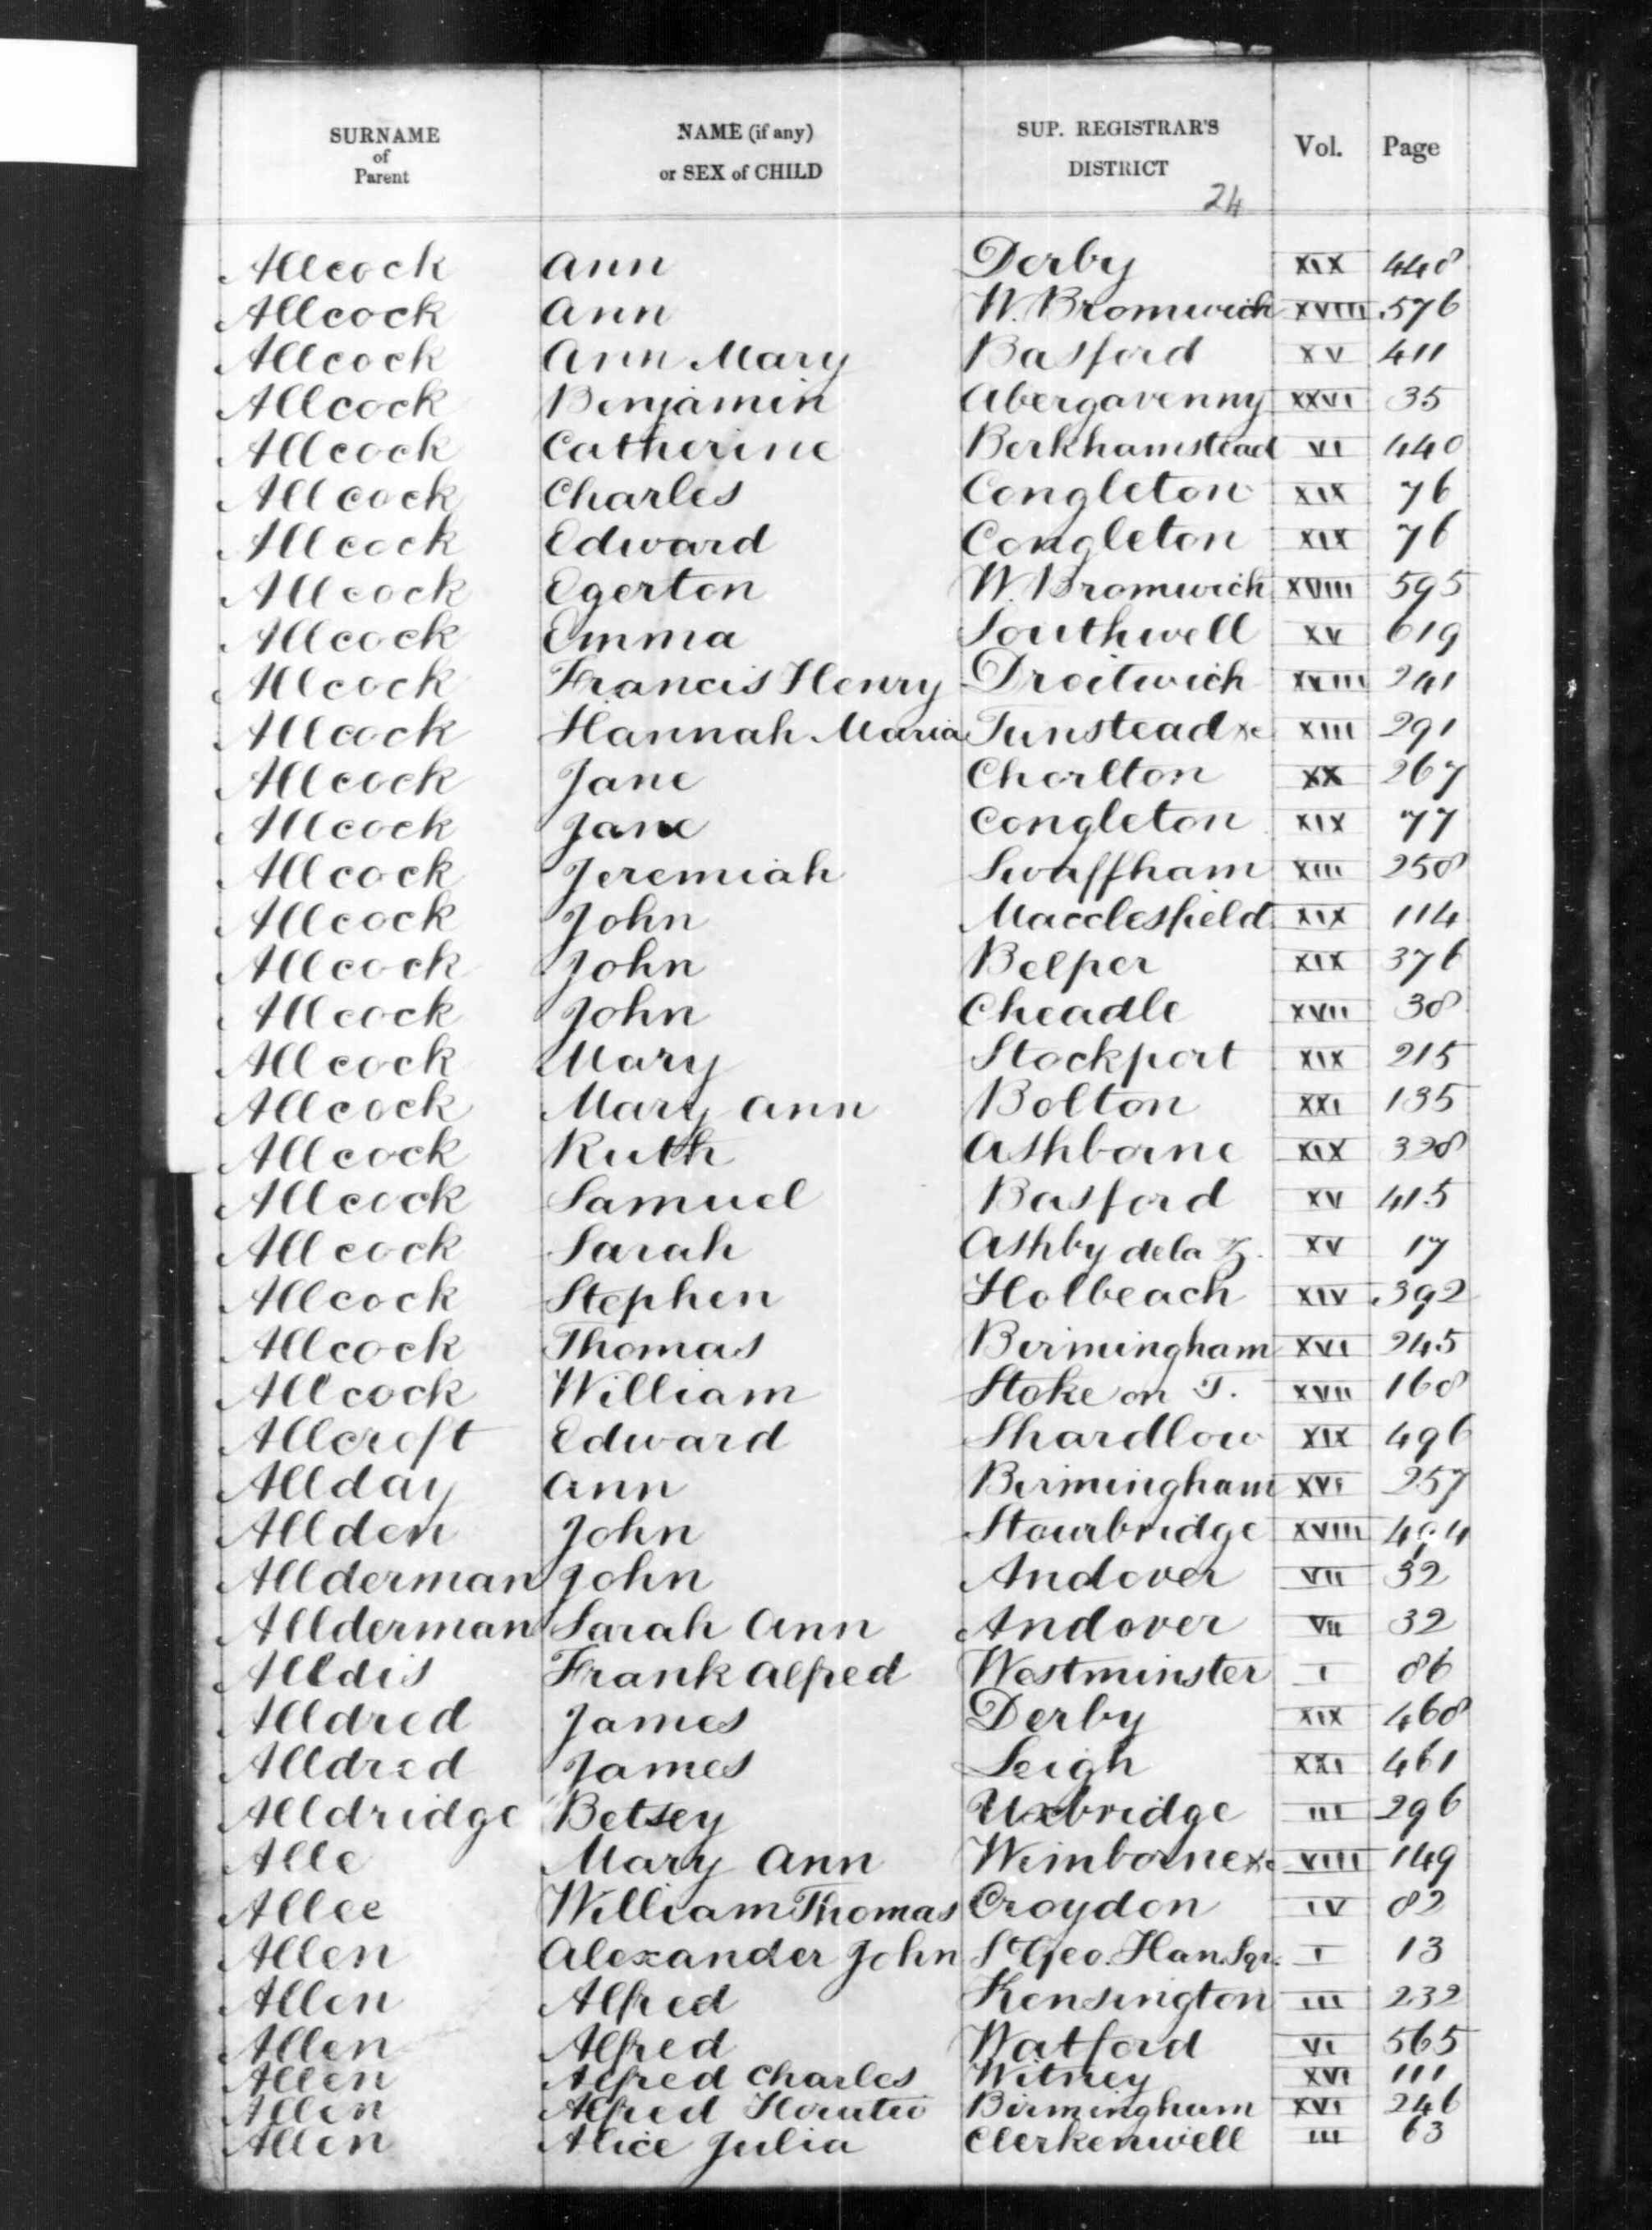 SURNAME of Parent NAME (if any) or SEX of CHILD SUP. REGISTRAR'S DISTRICT Vol. Page
24
Allcock Ann Derby XIX 448
Allcock Ann W. Bromwich XVIII 576
Allcock Ann Mary Basford XV 411
Allcock Benjamin Abergavenny XXVI 35
Allcock Catherine Berkhamstead VI 440
Allcock Charles Congleton XIX 76
Allcock Edward Congleton XIX 76
Allcock Egerton W. Bromwich XVIII 595
Allcock Emma Southwell XV 619
Allcock Francis Henry Droitwich XVIII 241
Allcock Hannah Maria Tunstead &c XIII 291
Allcock Jane Chorlton XX 267
Allcock Jane Congleton XIX 77
Allcock Jeremiah Swaffham XIII 258
Allcock John Macclesfield XIX 114
Allcock John Belper XIX 376
Allcock John Cheadle XVII 38
Allcock Mary Stockport XIX 215
Allcock Mary Ann Bolton XXI 135
Allcock Ruth Ashborne XIX 328
Allcock Samuel Basford XV 415
Allcock Sarah Ashby de la Z. XV 17
Allcock Stephen Holbeach XIV 392
Allcock Thomas Birmingham XVI 245
Allcock William Stoke on T. XVII 168
Allcroft Edward Shardlow XIX 496
Allday Ann Birmingham XVI 257
Allden John Stourbridge XVIII
Allderman John Andover VII 32
Allderman Sarah Ann Andover VII 32
Alldis Frank Alfred Westminster I 86
Alldred James Derby XIX 468
Alldred James Leigh XXI 461
Alldridge Betsey Uxbridge III 296
Alle Mary Ann Wimborne &c VIII 149
Allee William Thomas Croydon IV 82
Allen Alexander John St Geo. Han. Sqr. I 13
Allen Alfred Kensington III 232
Allen Alfred Watford VI 565
Allen Alfred Charles Witney XVI 111
Allen Alfred Horatio Birmingham XVI 246
Allen Alice Julia Clerkenwell III 63